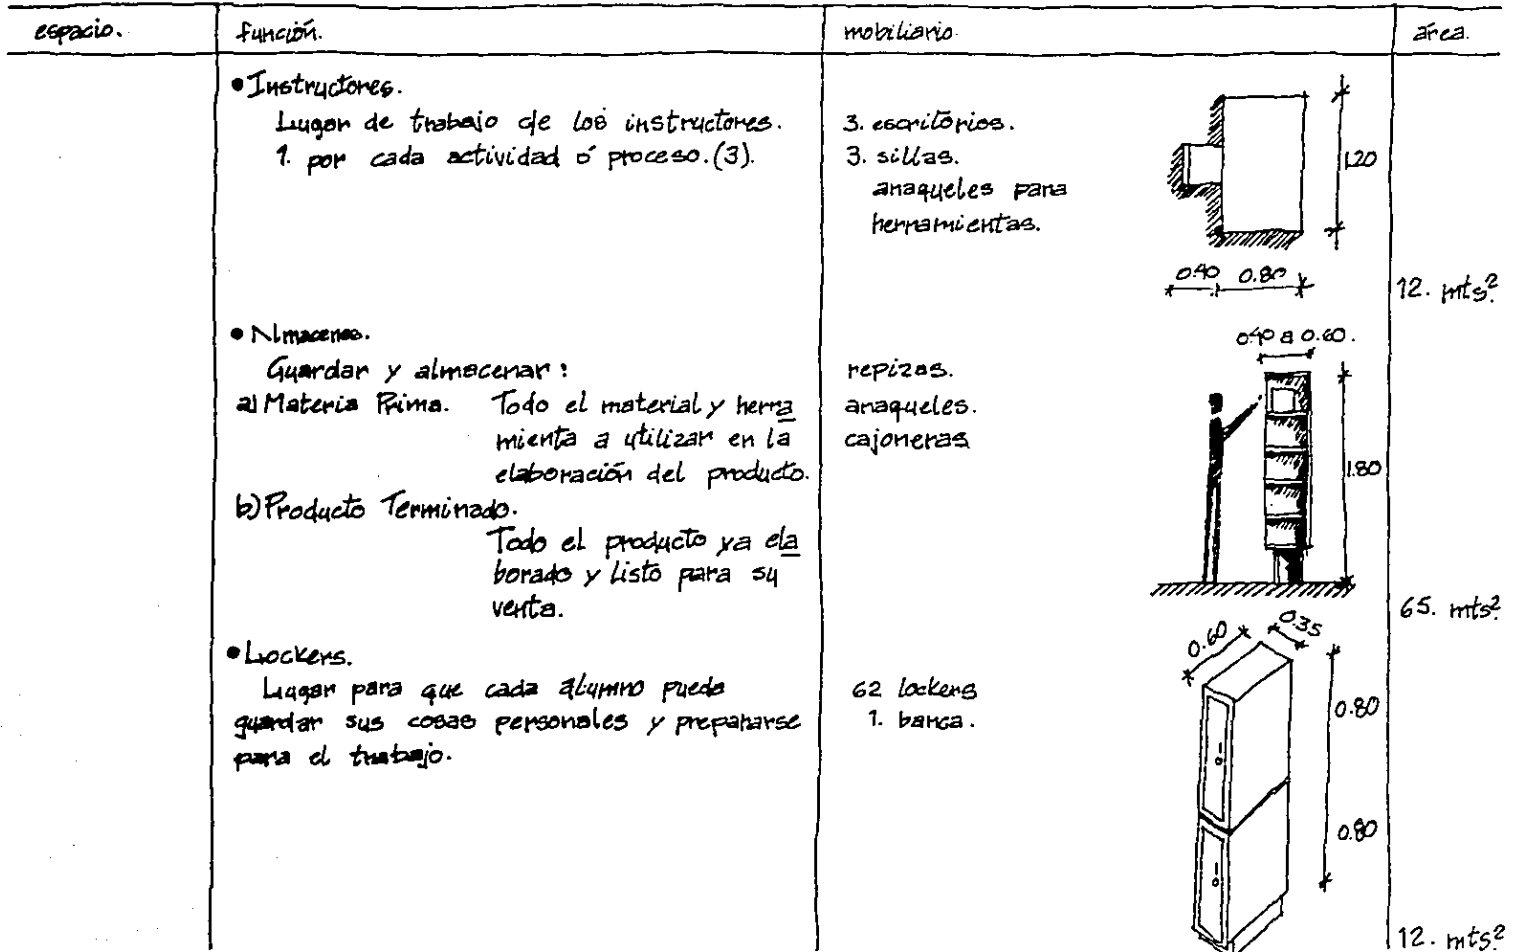 espacio. función. mobiliario. área.
• Instructores.
Lugar de trabajo de los instructores.
1. por cada actividad ó proceso. (3).
3. escritorios.
3. sillas.
anaqueles para
herramientas.
1.20
0.40 0.80
12. mts²
• Almacenes.
Guardar y almacenar:
a) Materia Prima. Todo el material y herra
mienta a utilizar en la
elaboración del producto.
b) Producto Terminado.
Todo el producto ya ela
borado y listo para su
venta.
repizas.
anaqueles.
cajoneras
0.40 a 0.60.
1.80
65. mts²
• Lockers.
Lugar para que cada alumno pueda
guardar sus cosas personales y prepararse
para el trabajo.
62 lockers
1. banca.
0.60 0.35
0.80
0.80
12. mts²